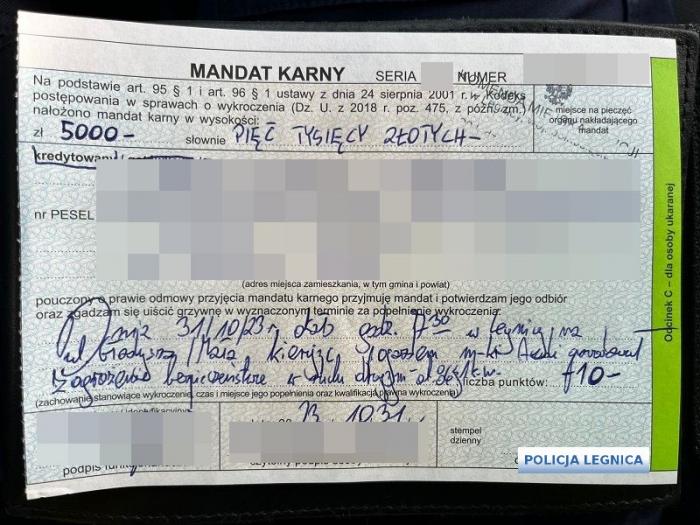 MANDAT KARNY SERIA NUMER
Na podstawie art. 95 § 1 i art. 96 § 1 ustawy z dnia 24 sierpnia 2001 r. Kodeks
postępowania w sprawach o wykroczenia (Dz. U. z 2018 r. poz. 475, z późn. zm.)
nałożono mandat karny w wysokości:
miejsce na pieczęć
organu nakładającego
mandat
zł 5000- słownie PIĘĆ TYSIĘCY ZŁOTYCH-
kredytowany
nr PESEL
(adres miejsca zamieszkania, w tym gmina i powiat)
pouczony o prawie odmowy przyjęcia mandatu karnego przyjmuję mandat i potwierdzam jego odbiór
oraz zgadzam się uiścić grzywnę w wyznaczonym terminie za popełnienie wykroczenia:
31/10/23r. godz. 7:30 w Legnicy na
ul. kierując pojazdem m-ki Audi
bezpieczeństwo w ruchu liczba punktów: 10-
(zachowanie stanowiące wykroczenie, czas i miejsce jego popełnienia oraz kwalifikacja prawna wykroczenia)
23 10 31
stempel
dzienny
podpis
czytelny podpis
Odcinek C – dla osoby ukaranej
POLICJA LEGNICA